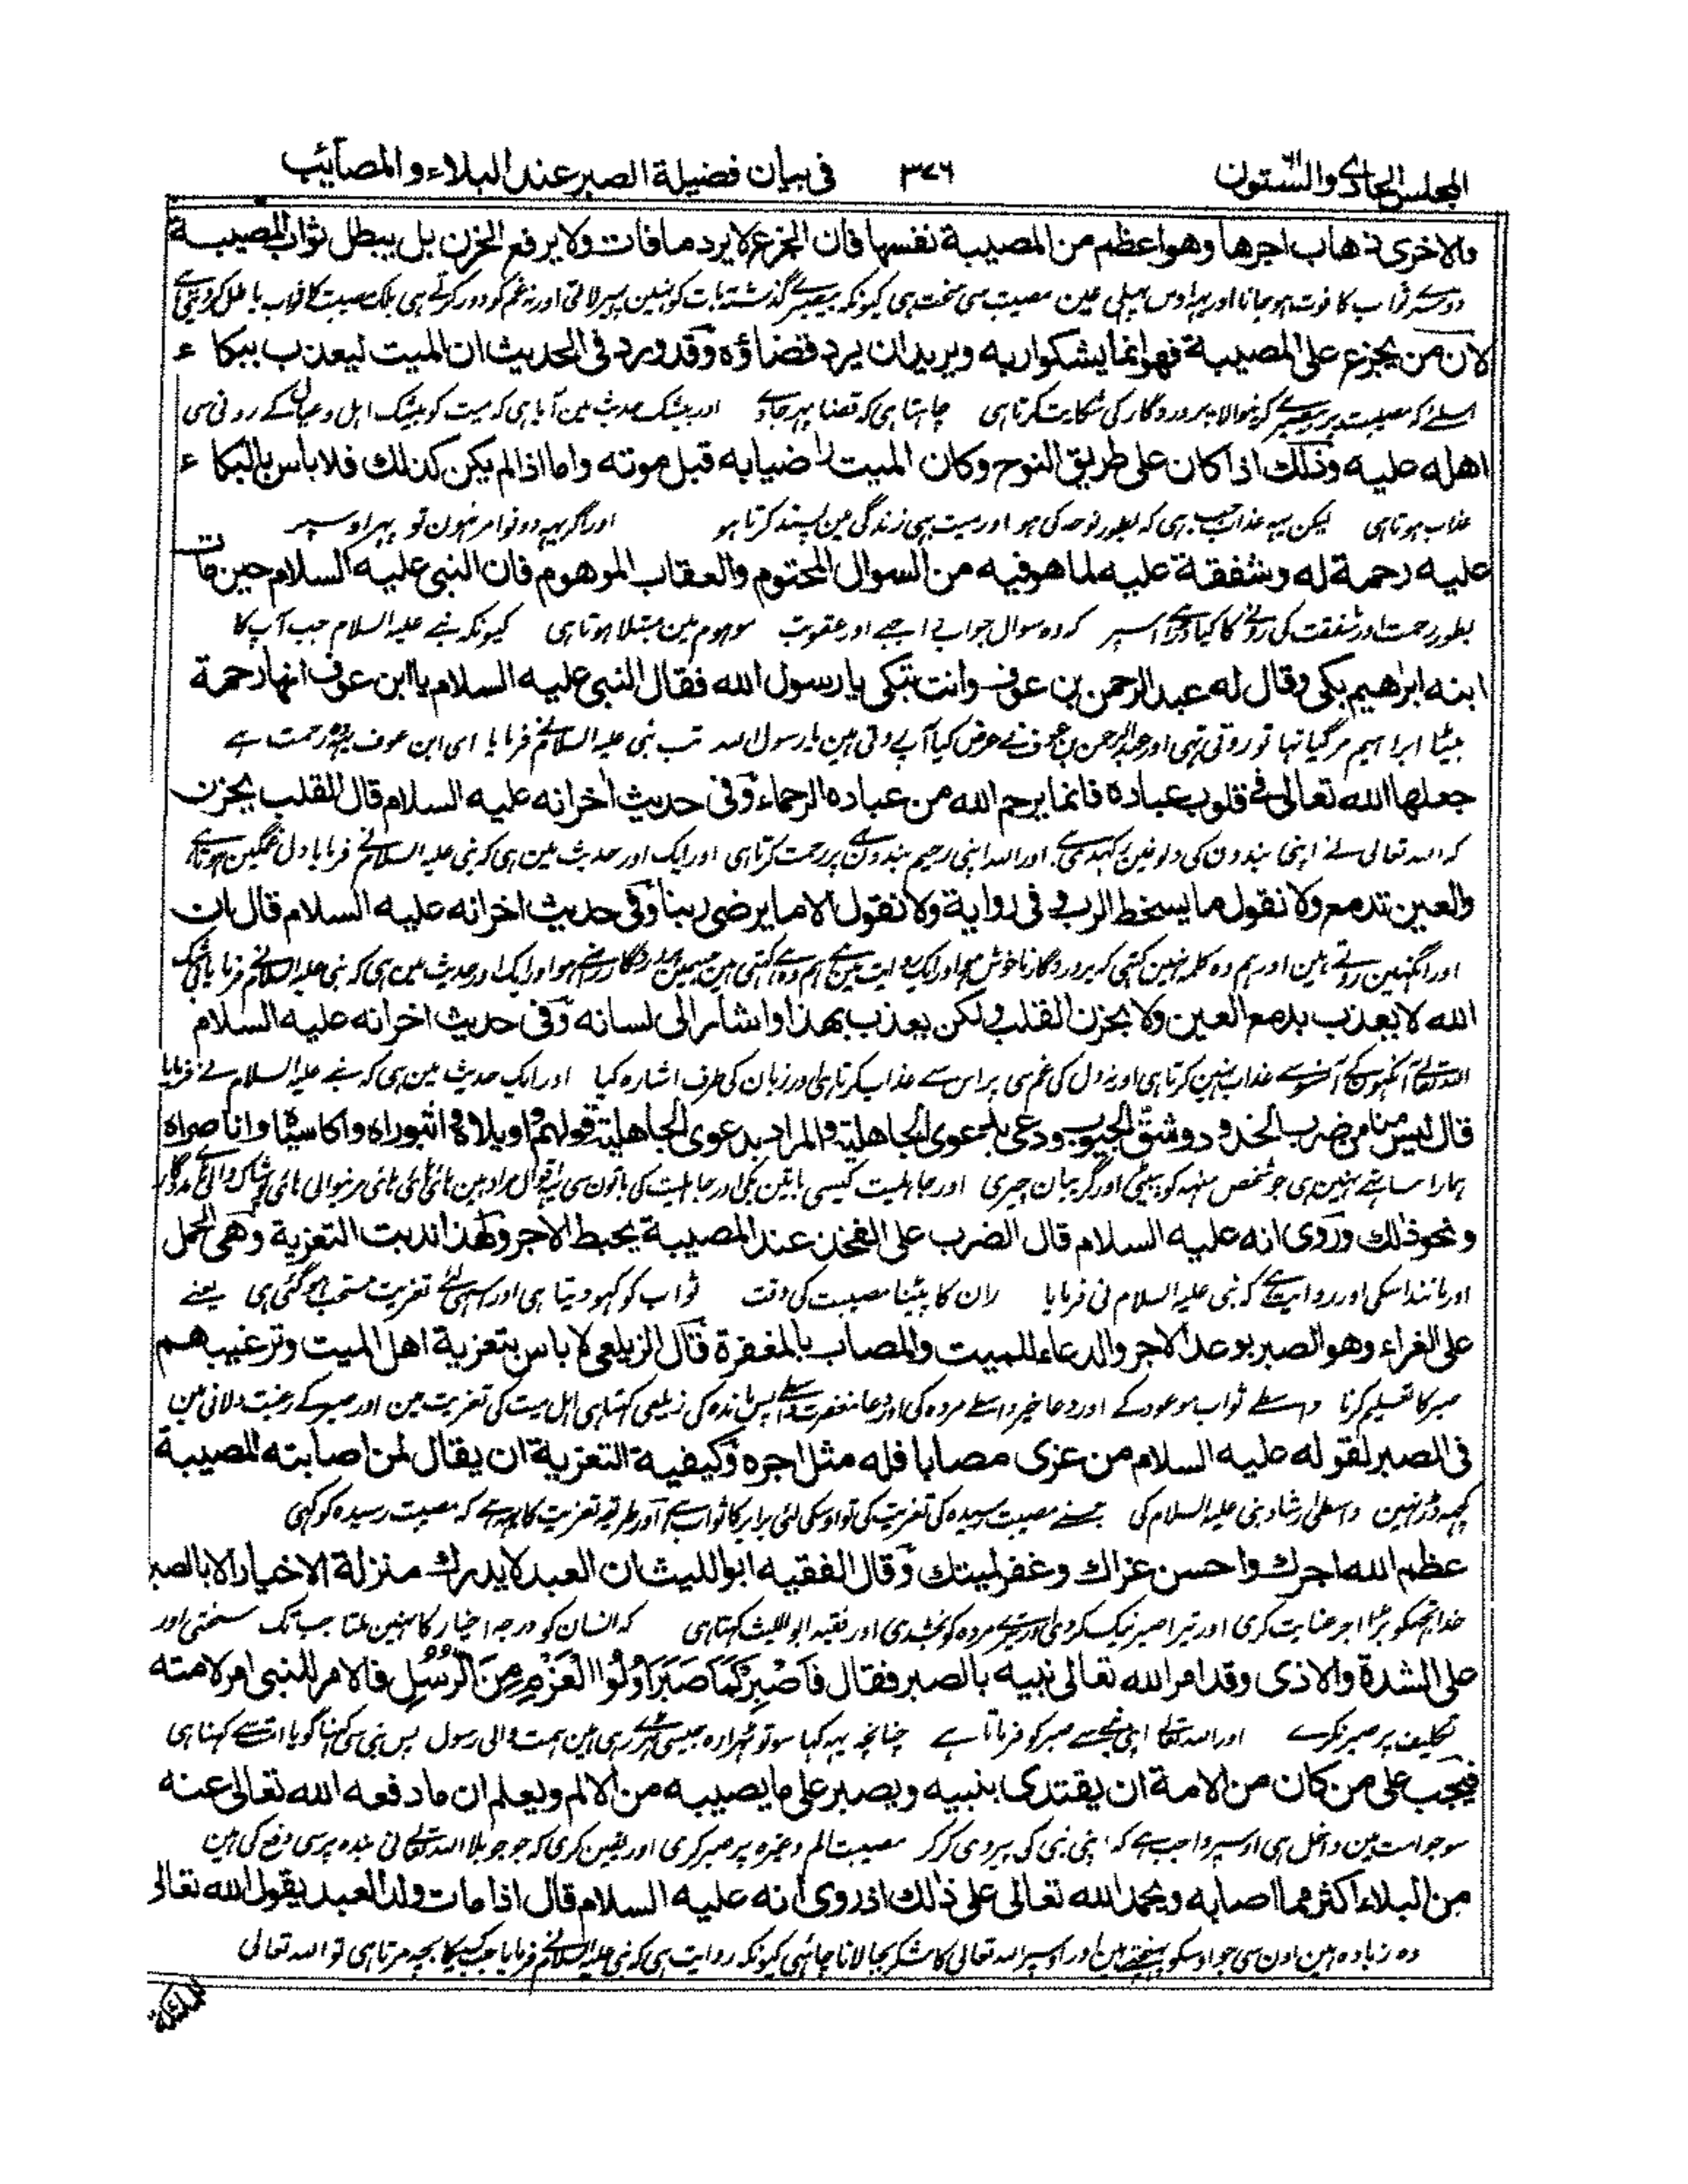 المجلس الحادي والستون ٣٧٦ فى بيان فضيلة الصبر عند البلاء والمصائب
والاخرى ذهاب اجرها وهو اعظم من المصيبة نفسها فان الجزع لا يرد ما فات ولا يرفع الحزن بل يبطل ثواب المصيبة
دوسرے ثواب کا فوت ہو جانا اور یہ اوس پہلی عین مصیبت سی سخت ہی کیونکہ بیصبری گذشتہ بات کو نہین پہیر لاتی اور نہ غم کو دور کرتے ہی بلکہ مصیبت کا ثواب باطل کر دیتی ہے
لان من يجزع على المصيبة فهو انما يشكو ربه ويريد ان يرد قضاؤه وقد ورد فى الحديث ان الميت ليعذب ببكاء
اسلئے کہ مصیبت پر بیصبرے کرنیوالا پروردگار کی شکایت کرتا ہی چاہتا ہی کہ قضا پہر جاوے اور بیشک حدیث مین آیا ہی کہ میت کو بیشک اہل وعیال کے رونی سی
اهله عليه وذلك اذا كان على طريق النوح وكان الميت راضيا به قبل موته واما اذا لم يكن كذلك فلا باس بالبكاء
عذاب ہوتا ہی لیکن یہ عذاب جب ہی کہ بطور نوحہ کی ہو اور میت بہی زندگی مین پسند کرتا ہو اور اگر یہ دونو امر نہون تو پہر اوسپر
عليه رحمة له وشفقة عليه لما هو فيه من السوال المحتوم والعقاب الموهوم فان النبى عليه السلام حين مات
بطور رحمت اور شفقت کی رونے کا کیا ڈر ہے اسپر کہ وہ سوال جواب اور عقوبت موہوم مین مبتلا ہوتا ہی کیونکہ نبے علیہ السلام جب آپ کا
ابنه ابراهيم بكى وقال له عبد الرحمن بن عوف وانت تبكى يا رسول الله فقال النبى عليه السلام يا ابن عوف انها رحمة
بیٹا ابراہیم مر گیا تہا تو روتی تہی اور عبد الرحمن بن عوف نے عرض کیا آپ روتی ہین یا رسول اللہ تب نبی علیہ السلام نے فرمایا ای ابن عوف یہ رحمت ہے
جعلها الله تعالى فى قلوب عباده فانما يرحم الله من عباده الرحماء وفى حديث اخر انه عليه السلام قال القلب يحزن
کہ اللہ تعالی نے اپنی بندون کی دلونمین رکہدی ہے اور اللہ اپنی رحیم بندون ہی پر رحمت کرتا ہی اور ایک اور حدیث مین ہی کہ نبی علیہ السلام نے فرمایا دل غمگین ہوتا ہے
والعين تدمع ولا نقول ما يسخط الرب وفى رواية ولا نقول الا ما يرضى ربنا وفى حديث اخر انه عليه السلام قال ان
اور آنکہین روتے ہین اور ہم وہ کلمہ نہین کہتی کہ پروردگار ناخوش ہو اور ایک روایت مین ہے ہم وہ ہے کہتی ہین جسمین پروردگار راضے ہو اور ایک اور حدیث مین ہی کہ نبی علیہ السلام نے فرمایا بیشک
الله لا يعذب بدمع العين ولا بحزن القلب ولكن يعذب بهذا واشار الى لسانه وفى حديث اخر انه عليه السلام
اللہ تعالے آنکہون کے آنسو سے عذاب نہین کرتا ہی اور نہ دل کی غم سی پر اس سے عذاب کرتا ہی اور زبان کی طرف اشارہ کیا اور ایک حدیث مین ہی کہ نبے علیہ السلام نے فرمایا
قال ليس منا من ضرب الخدود وشق الجيوب ودعى بدعوى الجاهلية والمراد بدعوى الجاهلية قولهم واويلاه واثبوراه واكاسياه واناصراه
ہمارا ساتہے نہین ہی جو شخص منہہ کو پیٹی اور گریبان چیری اور جاہلیت کیسی باتین بکی اور جاہلیت کی باتون سی یہ اقوال مراد ہین
ونحو ذلك وروى انه عليه السلام قال الضرب على الفخذ عند المصيبة يحبط الاجر ولهذا ندبت التعزية وهى الحمل
اور مانند اسکی اور روایت ہے کہ نبی علیہ السلام نی فرمایا ران کا پیٹنا مصیبت کی وقت ثواب کو کہو دیتا ہی اور اسی لئے تعزیت مستحب ہو گئی ہی یعنے
على العزاء وهو الصبر بوعد الاجر والدعاء للميت والمصاب بالمغفرة قال الزيلعى لا باس بتعزية اهل الميت وترغيبهم
صبر کا تعلیم کرنا واسطے ثواب موعود کے اور دعا خیر واسطے مردہ کی اور دعا مغفرت واسطے پس ماندہ کی زیلعی کہتا ہی اہل میت کی تعزیت مین اور صبر کے رغبت دلانی مین
فى الصبر لقوله عليه السلام من عزى مصابا فله مثل اجره وكيفية التعزية ان يقال لمن اصابته المصيبة
کچہہ ڈر نہین واسطی ارشاد نبی علیہ السلام کی جسنے مصیبت رسیدہ کی تعزیت کی تو اوسکی لئی برابر کا ثواب ہے اور طریقہ تعزیت کا یہ ہے کہ مصیبت رسیدہ کو کہی
عظم الله اجرك واحسن عزاك وغفر لميتك وقال الفقيه ابو الليث ان العبد لا يدرك منزلة الاخيار الا بالصبر
خدا تجہکو بڑا اجر عنایت کری اور تیرا صبر نیک کردی اور تیرے مردہ کو بخشدی اور فقیہ ابو اللیث کہتا ہی کہ انسان کو درجہ اخیار کا نہین ملتا جب تک سختی اور
على الشدة والاذى وقد امر الله تعالى نبيه بالصبر فقال فَاصْبِرْ كَمَا صَبَرَ اُولُوا الْعَزْمِ مِنَ الرُّسُلِ فالامر للنبى امر لامته
تکلیف پر صبر نکرے اور اللہ تعالے اپنی نبی سے صبر کو فرماتا ہے چنانچہ یہ کہا سو تو ٹہرا رہ جیسی ٹہرے رہی ہین ہمت والی رسول پس نبی سی کہنا گویا امت سے کہنا ہی
فيجب على من كان من الامة ان يقتدى بنبيه ويصبر على ما يصيبه من الالم ويعلم ان ما دفعه الله تعالى عنه
سو جو امت مین داخل ہی اوسپر واجب ہے کہ اپنی نبی کی پیروی کر کر مصیبت الم وغیرہ پر صبر کری اور یقین کری کہ جو جو بلا اللہ تعالے نی بندہ پر سی دفع کی ہین
من البلاء اكثر مما اصابه ويحمد الله تعالى على ذلك اذ روى انه عليه السلام قال اذا مات ولد العبد يقول الله تعالى
وہ زیادہ ہین اون سی جو اوسکو پہنچتے ہین اور اوسپر اللہ تعالی کا شکر بجا لانا چاہئی کیونکہ روایت ہی کہ نبی علیہ السلام نے فرمایا جب کسیکا بچہ مرتا ہی تو اللہ تعالی
لملائكته